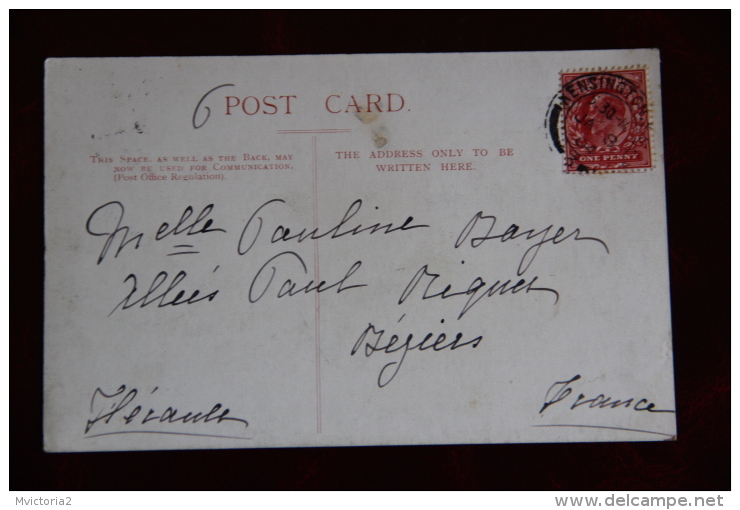 6
POST CARD.
THIS SPACE, AS WELL AS THE BACK, MAY
NOW BE USED FOR COMMUNICATION.
(Post Office Regulation).
THE ADDRESS ONLY TO BE
WRITTEN HERE.
KENSINGTON
30
ONE PENNY
Melle Pauline Bayer
Allées Paul Riquet
Béziers
Hérault
France
Mvictoria2
delcampe.net